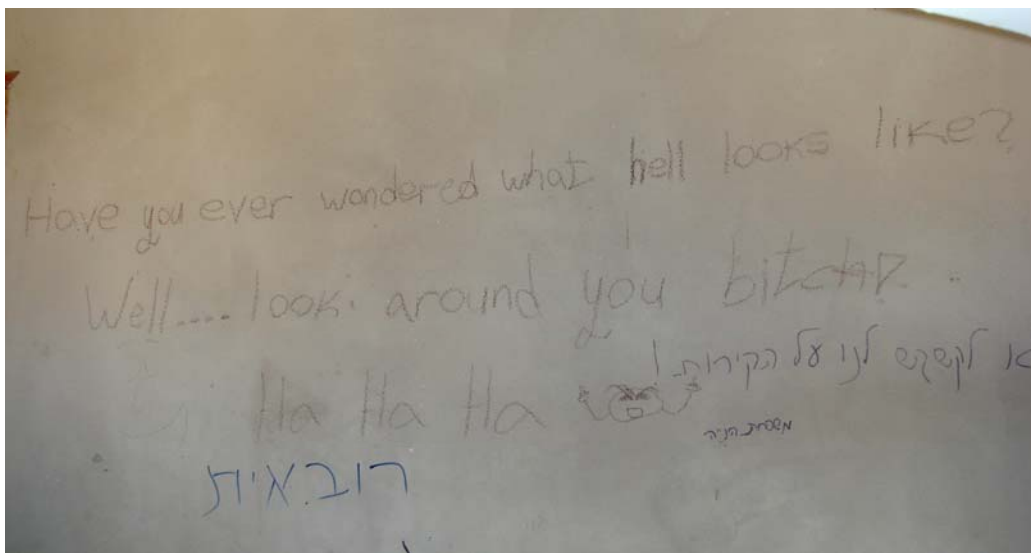 Have you ever wondered what hell looks like?
Well.... look around you bitch
לקשקש לנו על הקירות!
Ha Ha Ha
רובאית